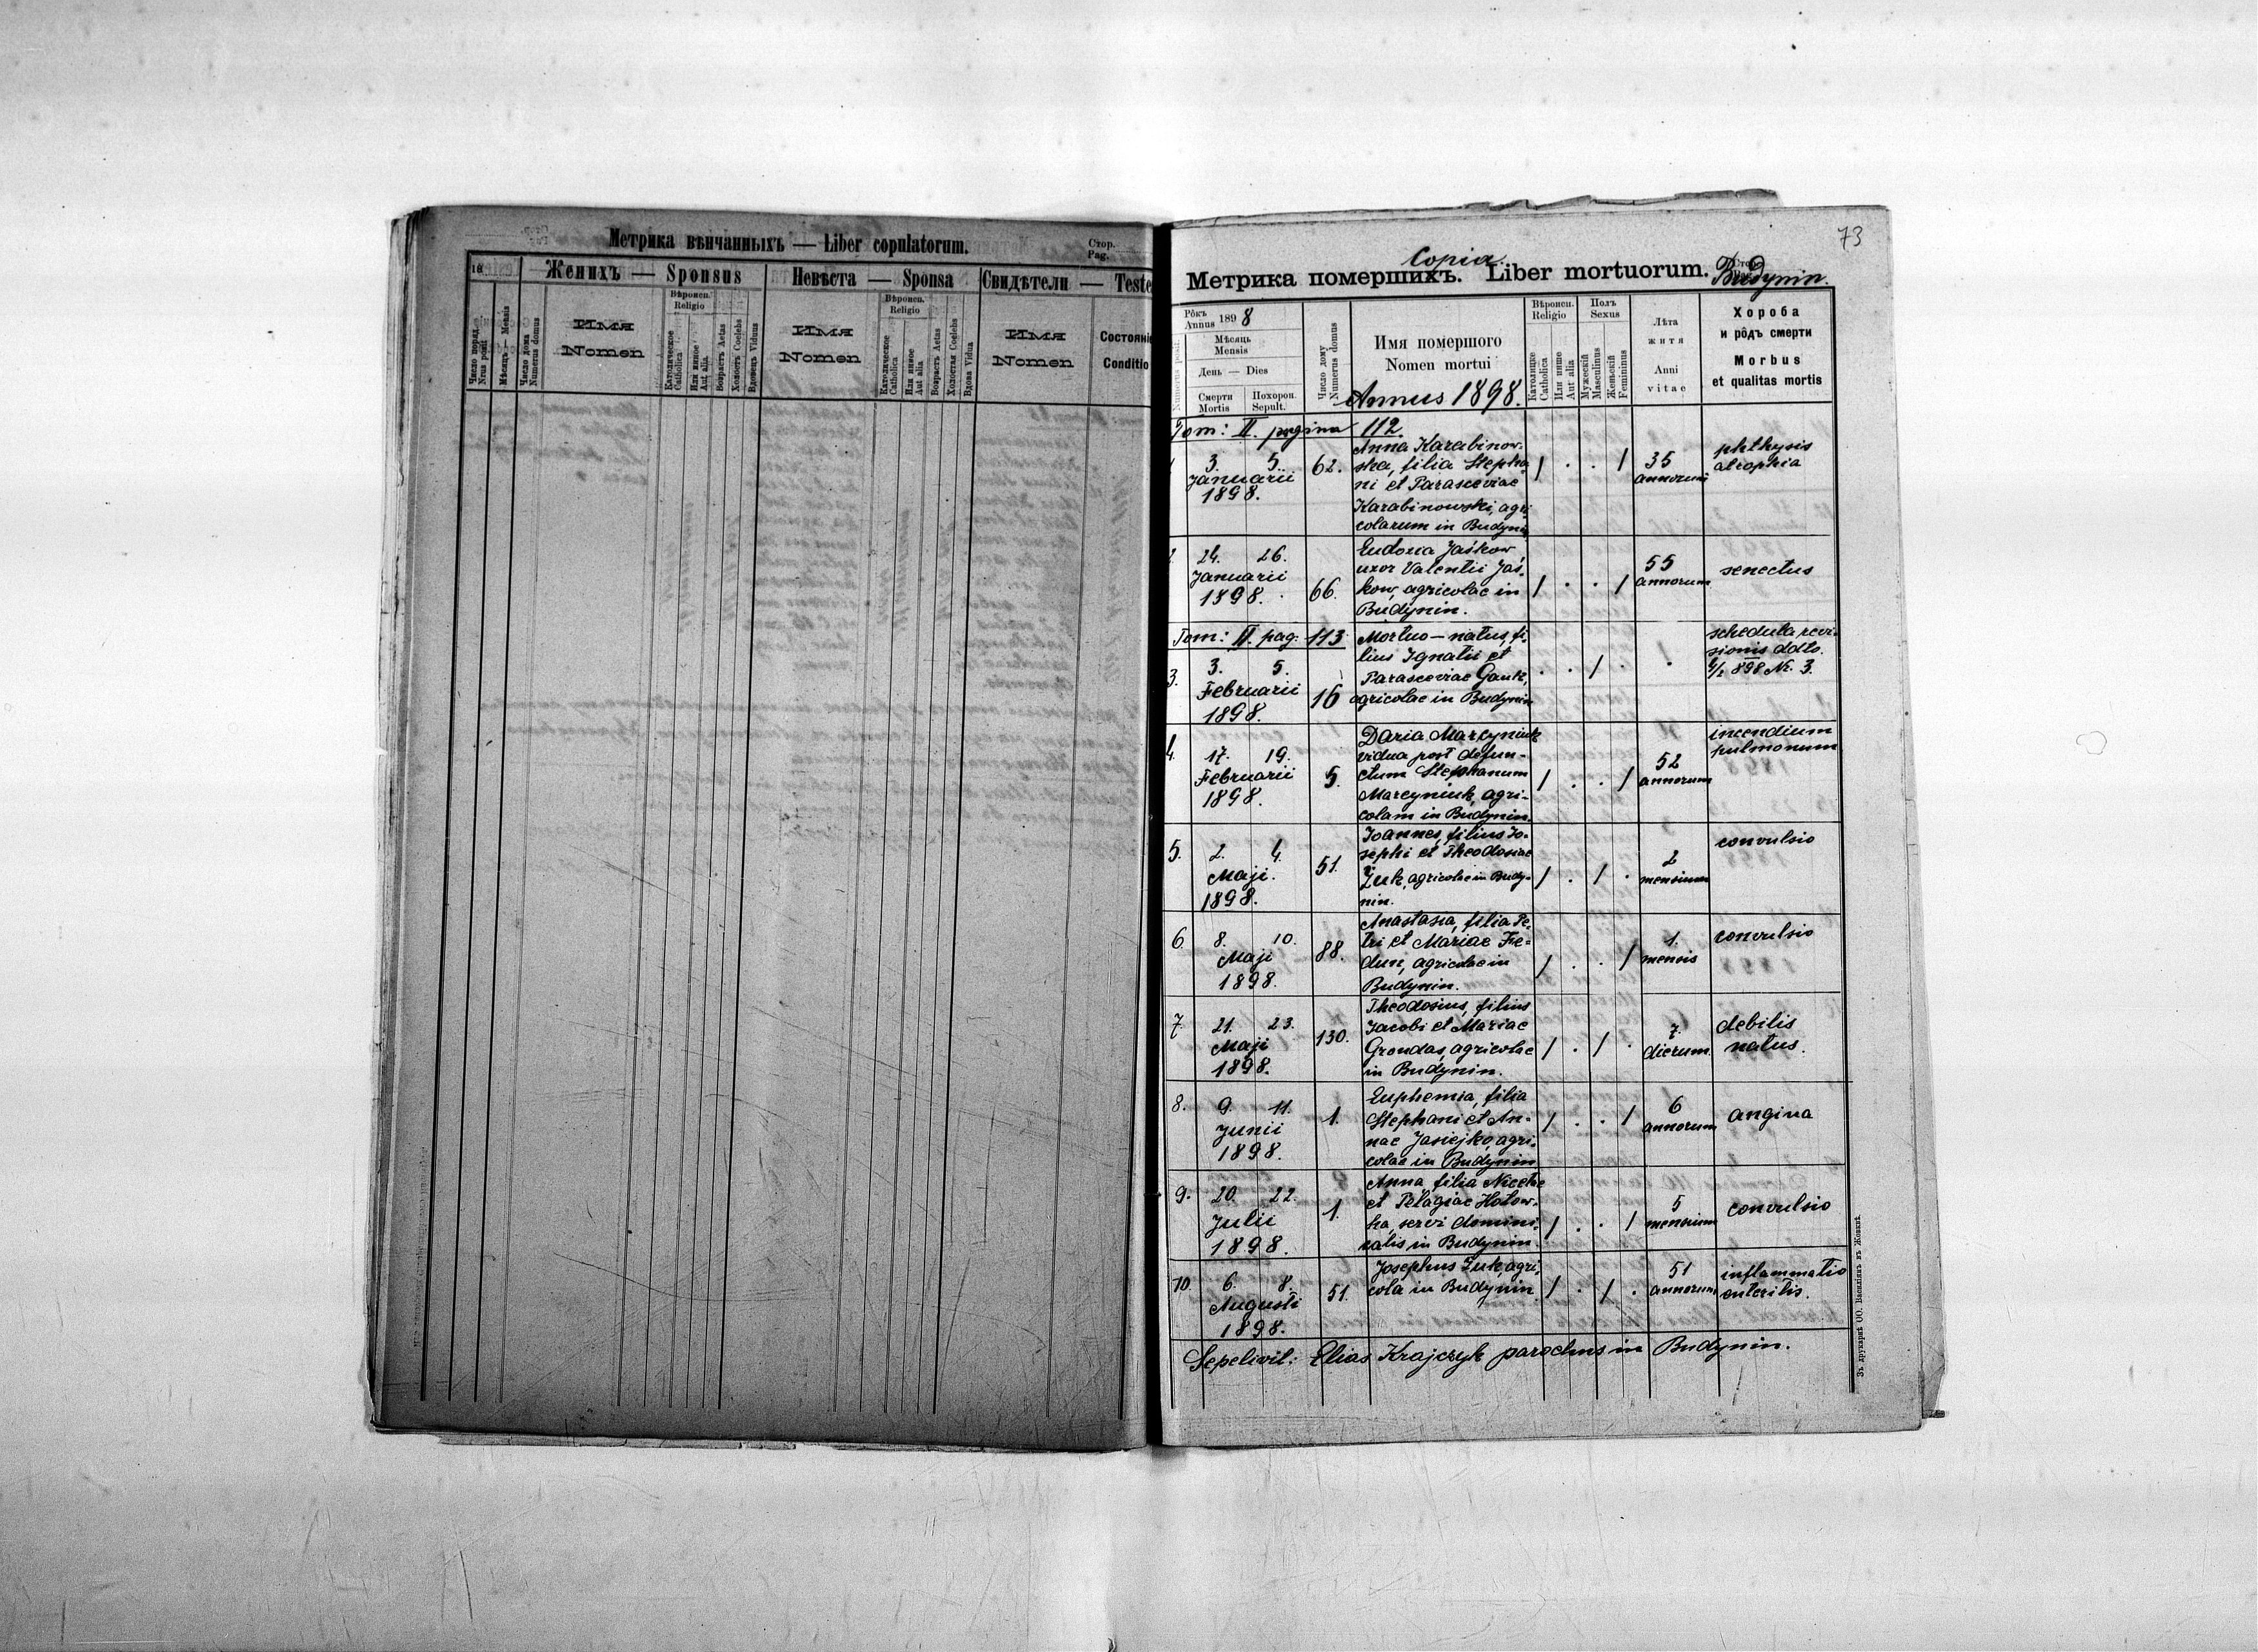 Метрика вѣнчанныхъ — Liber copulatorum.
Стор.
Pag.
18
Женихъ — Sponsus
Невѣста — Sponsa
Свидѣтели — Teste
Число поряд.
Nrus posit
Мѣсяцъ — Mensis
Число дома
Numerus domus
Имя
Nomen
Вѣроисп.
Religio
Католическое
Catholica
Или инное
Aut alia
Возрастъ Aetas
Холостъ Coelebs
Вдовецъ Viduus
Имя
Nomen
Вѣроисп.
Religio
Католическое
Catholica
Или инное
Aut alia
Возрастъ Aetas
Холостая Coelebs
Вдова Vidua
Имя
Nomen
Состояні
Conditio
73
Copia.
Метрика помершихъ. Liber mortuorum.
Budynin.
Рôкъ
Annus 1898
Мѣсяць
Mensis
День — Dies
Смерти
Mortis
Похорон.
Sepult.
Число дому
Numerus domus
Имя помершого
Nomen mortui
Annus 1898.
Вѣроисп.
Religio
Католицке
Catholica
Или инше
Aut alia
Полъ
Sexus
Мужескій
Masculinus
Женьскій
Femininus
Лѣта
житя
Anni
vitae
Хороба
и рôдъ смерти
Morbus
et qualitas mortis
Tom: II. pagina 112.
3. 5.
Januarii
1898.
62.
Anna Karabinow-
ska, filia Stepha-
ni et Parasceviae
Karabinowski, agri-
colarum in Budynin
35
annorum
phthysis
atrophia
24. 26.
Januarii
1898.
66.
Eudoxia Jaśkow
uxor Valentii Jaś-
kow, agricolae in
Budynin.
55
annorum
senectus
Tom: II. pag. 113
3.
3. 5.
Februarii
1898.
16
Mortuo-natus, fi-
lius Ignatii et
Parasceviae Gauk,
agricolae in Budynin
schedula revi-
sionis ddto.
4/2 898 Nr. 3.
4.
17. 19.
Februarii
1898.
5.
Daria Marcyniuk
vidua post defun-
ctum Stephanum
Marcyniuk, agri-
colam in Budynin.
52
annorum
incendium
pulmonum
5.
2. 4.
Maji.
1898.
51.
Joannes, filius Jo-
sephi et Theodosiae
Żuk, agricolae in Budy-
nin.
2
mensium
convulsio
6.
8. 10.
Maji
1898.
88.
Anastasia, filia Pe-
tri et Mariae Fe-
dun, agricolae in
Budynin.
1.
mensis
convulsio
7.
21. 23.
Maji
1898.
130.
Theodosius, filius
Jacobi et Mariae
Grondas, agricolae
in Budynin.
7.
dierum
debilis
natus.
8.
9. 11.
Junii
1898.
1.
Euphemia, filia
Stephani et An-
nae Jasiejko, agri-
colae in Budynin
6
annorum
angina
9.
20. 22.
Julii
1898.
1.
Anna, filia Nicetae
et Pelagiae Hołow-
ka, servi domini-
calis in Budynin.
5
mensium
convulsio
10.
6. 8.
Augusti
1898.
51.
Josephus Żuk, agri-
cola in Budynin
51
annorum
inflammatio
enteritis.
Sepelivit: Elias Krajczyk parochus in Budynin.
Въ друкарнѣ ОО. Василіянъ въ Жовквѣ.